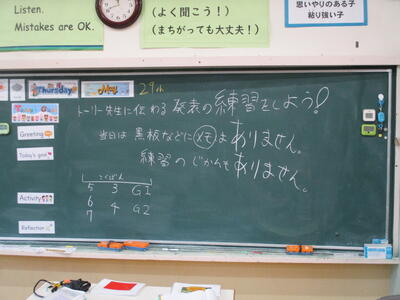 Listen.
Mistakes are OK.
(よく聞こう!)
(まちがっても大丈夫!)
思いやりのある子
粘り強い子
Thursday
May
29th
トーリー先生に伝わる 発表の練習をしよう!
当日は 黒板などに メモは ありません。
練習の じかんも ありません。
Greeting
Today's goal
Activity
Reflection
こくばん
5 3 G1
6
7 4 G2